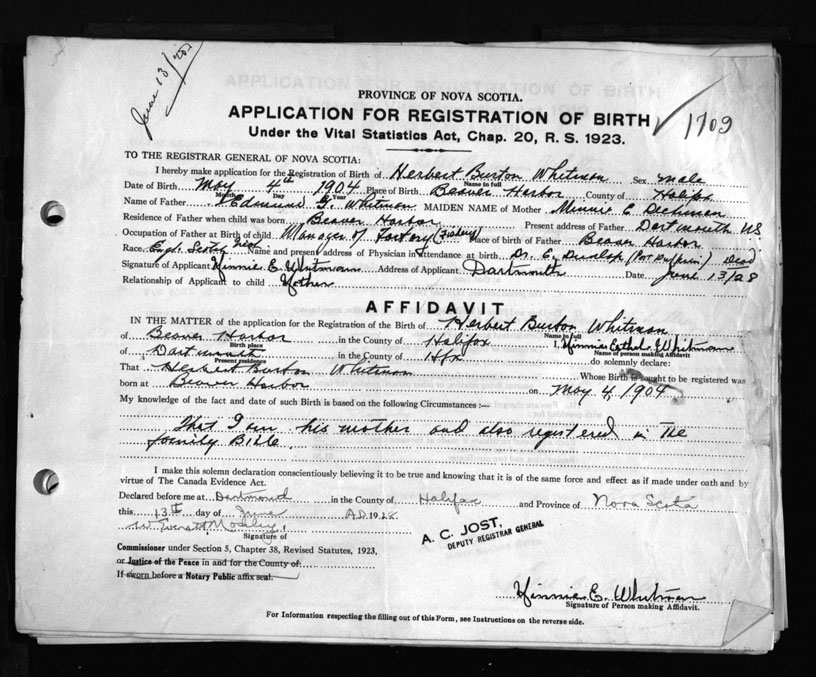 June 13/28
PROVINCE OF NOVA SCOTIA.
APPLICATION FOR REGISTRATION OF BIRTH
1709
Under the Vital Statistics Act, Chap. 20, R. S. 1923.
TO THE REGISTRAR GENERAL OF NOVA SCOTIA:
I hereby make application for the Registration of Birth of Herbert Burton Whitman Sex male
Name in full
Date of Birth May 4th 1904 Place of Birth Beaver Harbor County of Halifx
Month Day Year
Name of Father Edmund G. Whitman MAIDEN NAME of Mother Minnie E Dickinson
Residence of Father when child was born Beaver Harbor Present address of Father Dartmouth NS
Occupation of Father at Birth of child Manager of Factory Place of birth of Father Beaver Harbor
Race Engl. Scotch Name and present address of Physician in attendance at birth Dr. C. Dunlop Dead
Signature of Applicant Minnie E. Whitman Address of Applicant Dartmouth Date June 13/28
Relationship of Applicant to child Mother
AFFIDAVIT
IN THE MATTER of the application for the Registration of the Birth of Herbert Burton Whitman
Name in full
of Beaver Harbor in the County of Halifax I, Minnie Ethel Whitman
Birth place Name of person making Affidavit
of Dartmouth in the County of Hfx do solemnly declare:
Present residence
That Herbert Burton Whitman Whose Birth is sought to be registered was
born at Beaver Harbor on May 4, 1904
My knowledge of the fact and date of such Birth is based on the following Circumstances :—
That I am his mother and also registered in The
family Bible.
I make this solemn declaration conscientiously believing it to be true and knowing that it is of the same force and effect as if made under oath and by
virtue of The Canada Evidence Act.
Declared before me at Dartmouth in the County of Halifax and Province of Nova Scotia
this 13th day of June A.D. 1928
W. Everett Moseley
Signature of
A. C. JOST,
DEPUTY REGISTRAR GENERAL
Commissioner under Section 5, Chapter 38, Revised Statutes, 1923,
or Justice of the Peace in and for the County of
If sworn before a Notary Public affix seal.
Minnie E. Whitman
Signature of Person making Affidavit.
For Information respecting the filling out of this Form, see Instructions on the reverse side.